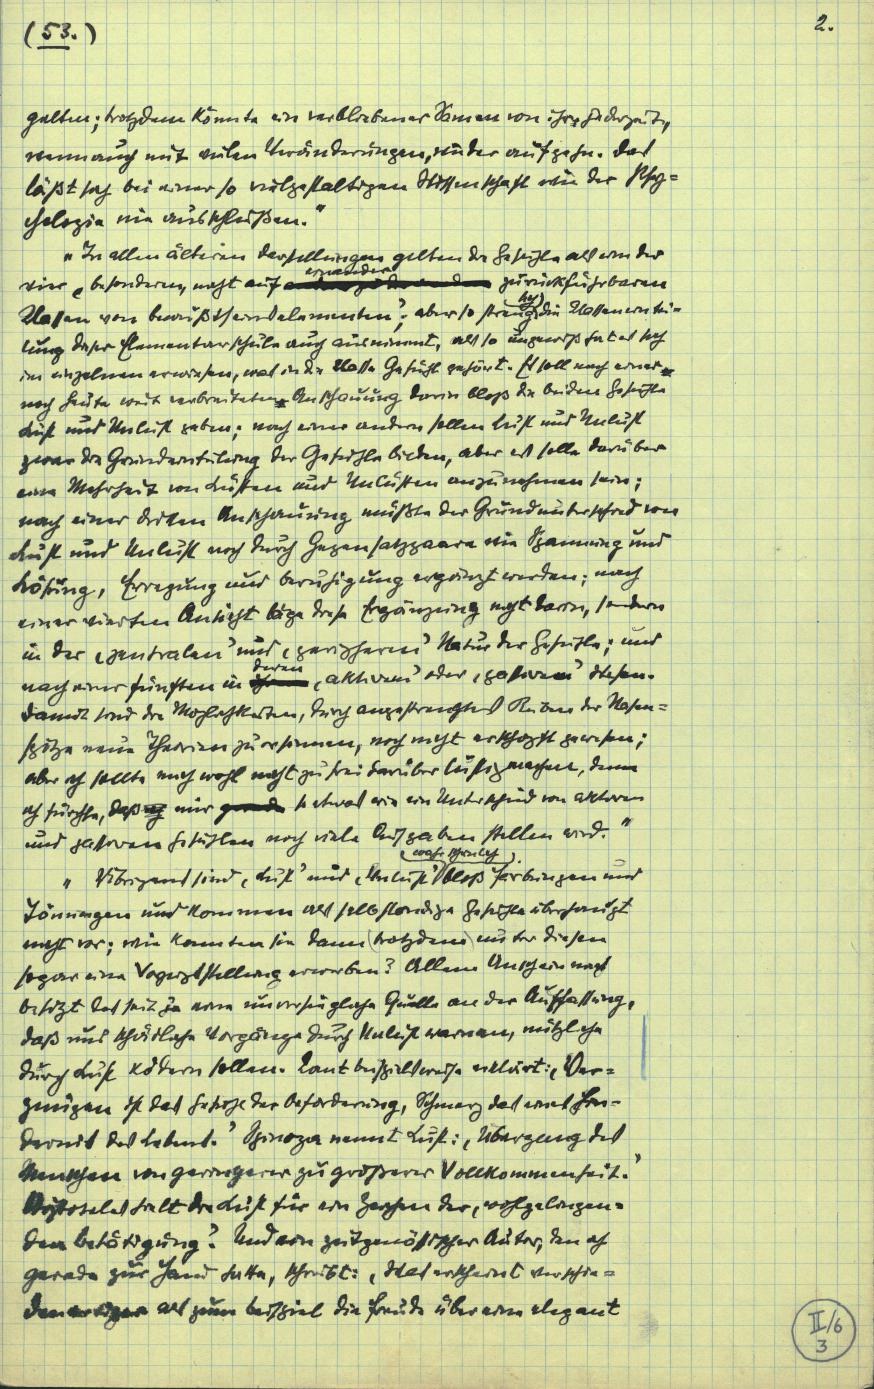 (53.)
2.
gelten; trotzdem könnte ein verbliebener Samen von ihr jederzeit,
wenn auch mit vielen Veränderungen, wieder aufgehn. Das
läßt sich bei einer so vielgestaltigen Wissenschaft wie der Psy-
chologie nie ausschließen."
"In allen älteren Darstellungen gelten die Gefühle als eine der
einander
vier, besonderen, nicht auf zurückführbaren
Klassen von Bewußtseinselementen'; aber so streng sich die Klasseneintei-
lung dieser Elementarschule auch ausnimmt, als so ungewiß hat es sich
im einzelnen erwiesen, was in die Klasse Gefühl gehört. Es soll nach einer
noch heute weit verbreiteten Anschauung darin bloß die beiden Gefühle
Lust und Unlust geben; nach einer andern sollen Lust und Unlust
zwar die Grundeinteilung der Gefühle bilden, aber es solle darüber
eine Mehrheit von Lüsten und Unlüsten anzunehmen sein;
nach einer dritten Anschauung müßte der Grundunterschied von
Lust und Unlust noch durch Gegensatzpaare wie Spannung und
Lösung, Erregung und Beruhigung ergänzt werden; nach
einer vierten Ansicht läge diese Ergänzung nicht darin, sondern
in der ,zentralen' und ,peripheren' Natur der Gefühle; und
deren
nach einer fünften in ,aktivem' oder ,passivem'
Damit sind die Möglichkeiten, durch angestrengtes Reiben der Nasen-
spitze neue Theorien zu ersinnen, noch nicht erschöpft gewesen;
aber ich sollte mich wohl nicht zu frei darüber lustig machen, denn
ich fürchte, daß mir so etwas wie ein Unterschied von aktiven
und passiven Gefühlen noch viele Aufgaben stellen wird."
(wahrscheinlich)
"Übrigens sind ,Lust' und ,Unlust' bloß Färbungen und
Tönungen und kommen als selbständige Gefühle überhaupt
nicht vor; wie konnten sie dann (trotzdem) unter diesen
sogar eine Vorzugsstellung erwerben? Allem Anschein nach
besitzt das seit je eine unversiegliche Quelle an der Auffassung,
daß uns schädliche Vorgänge durch Unlust warnen, nützliche
durch Lust ködern sollen. Kant beispielsweise erklärt: ,Ver-
gnügen ist das Gefühl der Beförderung, Schmerz das eines Hin-
dernis des Lebens.' Spinoza nennt Lust: ,Übergang des
Menschen von geringerer zu größerer Vollkommenheit.'
Aristoteles hält die Lust für ein Zeichen der ,wohlgelingen-
den Betätigung'. Und ein zeitgenössischer Autor, den ich
gerade zur Hand hatte, schreibt: ,Was erscheint verschie-
denartiger als zum Beispiel die Freude über eine elegant
II/6
3